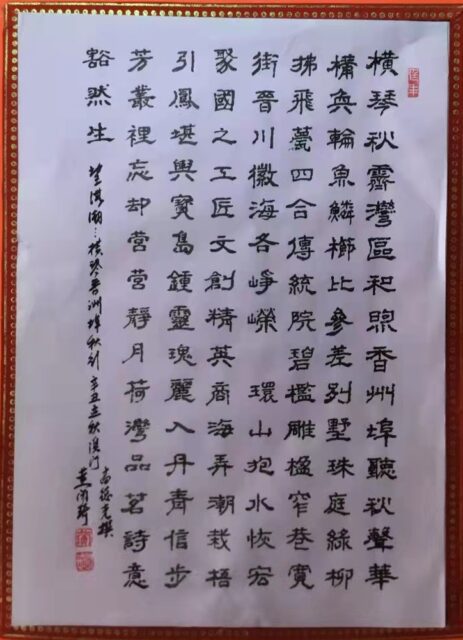 橫琴秋霽灣區和煦香州埠聽秋聲華
構奐輪魚鱗櫛比參差別墅珠庭綠柳
拂飛甍四合傳統院碧檻雕楹窄巷寬
街晉川徽海各崢嶸 環山抱水恢宏
聚國之工匠文創精英商海弄潮栽梧
引鳳堪輿寶島鍾靈瑰麗入丹青信步
芳叢裡忘却營營靜月荷灣品茗詩意
豁然生
望海潮：橫琴香洲埠秋 辛丑立秋澳門
撰